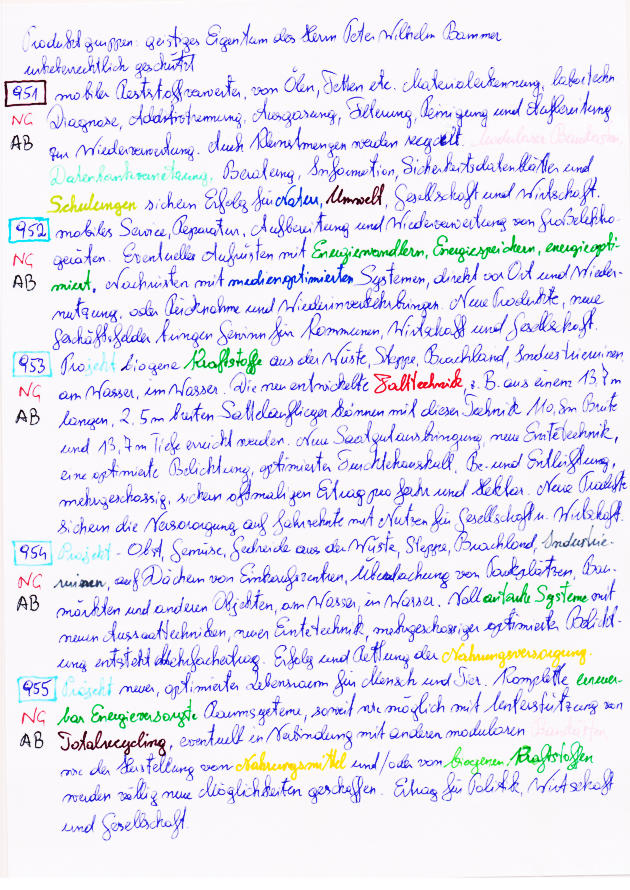 Produktgruppen: geistiges Eigentum des Herrn Peter Wilhelm Bammer
urheberrechtlich geschützt
951 mobiler Reststoffverwerter, von Ölen, Fetten etc. Materialerkennung, labortechn.
NG Diagnose, Additivtrennung, Ausgasung, Filterung, Reinigung und Aufbereitung
AB zur Wiederverwertung. Auch Kleinstmengen werden modularer Baukasten,
Datenbankvernetzung, Beratung, Information, Sicherheitsdatenblätter und
Schulungen sichern Erfolg für Natur, Umwelt, Gesellschaft und Wirtschaft.
952 mobiles Service, Reparatur, Aufbereitung und Wiederverwertung von Großelektro-
NG geräten. Eventuelles Aufrüsten mit Energiewandlern, Energiespeichern, energieopti-
AB miert, Nachrüsten mit medienoptimierten Systemen, direkt vor Ort und Wieder-
nutzung, oder Rücknahme und Wiederinverkehrbringen. Neue Produkte, neue
Geschäftsfelder bringen Gewinn für Kommunen, Wirtschaft und Gesellschaft.
953 Projekt biogene Kraftstoffe aus der Wüste, Steppe, Brachland, Industrieruinen,
NG am Wasser, im Wasser. Die neu entwickelte Falttechnik, z. B. aus einem 13,7m
AB langen, 2,5m breiten Sattelauflieger können mit dieser Technik 110,8m Breite
und 13,7m Tiefe erreicht werden. Neue Saatgutausbringung, neue Erntetechnik,
eine optimierte Belichtung, optimierter Feuchtehaushalt, Be- und Entlüftung,
mehrgeschossig, sichern oftmaligen Ertrag pro Jahr und Hektar. Neue Produkte
sichern die Versorgung auf Jahrzehnte mit Nutzen für Gesellschaft u. Wirtschaft.
954 Projekt - Obst, Gemüse, Getreide aus der Wüste, Steppe, Brachland, Industrie-
NG ruinen, auf Dächern von Einkaufszentren, Überdachung von Parkplätzen, Bau-
AB märkten und anderen Objekten, am Wasser, im Wasser. Vollautarke Systeme mit
neuen Aussaattechniken, neuer Erntetechnik, mehrgeschossiger optimierter Belicht-
ung entsteht Erfolg und Rettung der Nahrungsversorgung.
955 Projekt neuer, optimierter Lebensraum für Mensch und Tier. Komplette erneuer-
NG bar Energieversorgte Raumsysteme, soweit wie möglich mit Unterstützung von
AB Totalrecycling, eventuell in Verbindung mit anderen modularen Baukästen
wie der Herstellung von Nahrungsmittel und/oder von biogenen Kraftstoffen
werden völlig neue Möglichkeiten geschaffen. Ertrag für Politik, Wirtschaft
und Gesellschaft.